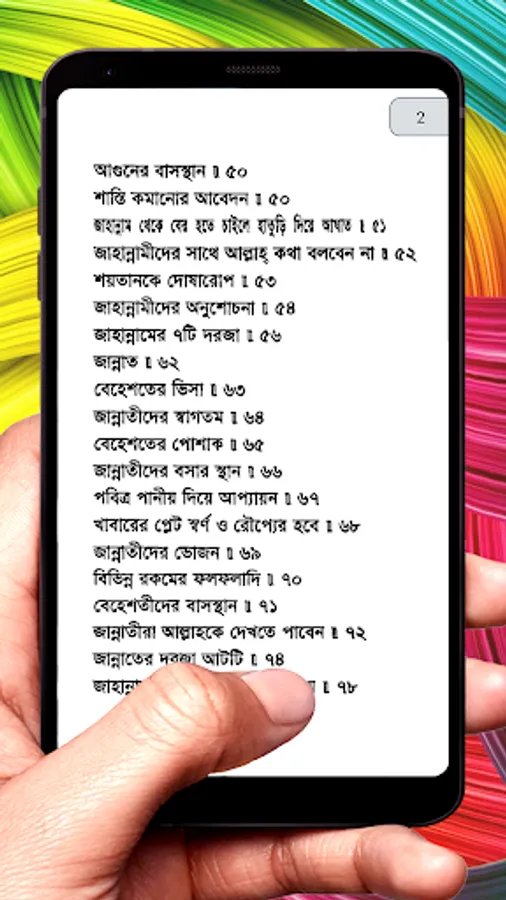 2
আগুনের বাসস্থান ৷ ৫০
শাস্তি কমানোর আবেদন ৷ ৫০
জাহান্নাম থেকে বের হতে চাইলে হাতুড়ি দিয়ে আঘাত ৷ ৫১
জাহান্নামীদের সাথে আল্লাহ্ কথা বলবেন না ৷ ৫২
শয়তানকে দোষারোপ ৷ ৫৩
জাহান্নামীদের অনুশোচনা ৷ ৫৪
জাহান্নামের ৭টি দরজা ৷ ৫৬
জান্নাত ৷ ৬২
বেহেশতের ভিসা ৷ ৬৩
জান্নাতীদের স্বাগতম ৷ ৬৪
বেহেশতের পোশাক ৷ ৬৫
জান্নাতীদের বসার স্থান ৷ ৬৬
পবিত্র পানীয় দিয়ে আপ্যায়ন ৷ ৬৭
খাবারের প্লেট স্বর্ণ ও রৌপ্যের হবে ৷ ৬৮
জান্নাতীদের ভোজন ৷ ৬৯
বিভিন্ন রকমের ফলফলাদি ৷ ৭০
বেহেশতীদের বাসস্থান ৷ ৭১
জান্নাতীরা আল্লাহকে দেখতে পাবেন ৷ ৭২
জান্নাতের দরজা আটটি ৷ ৭৪
৷ ৭৮